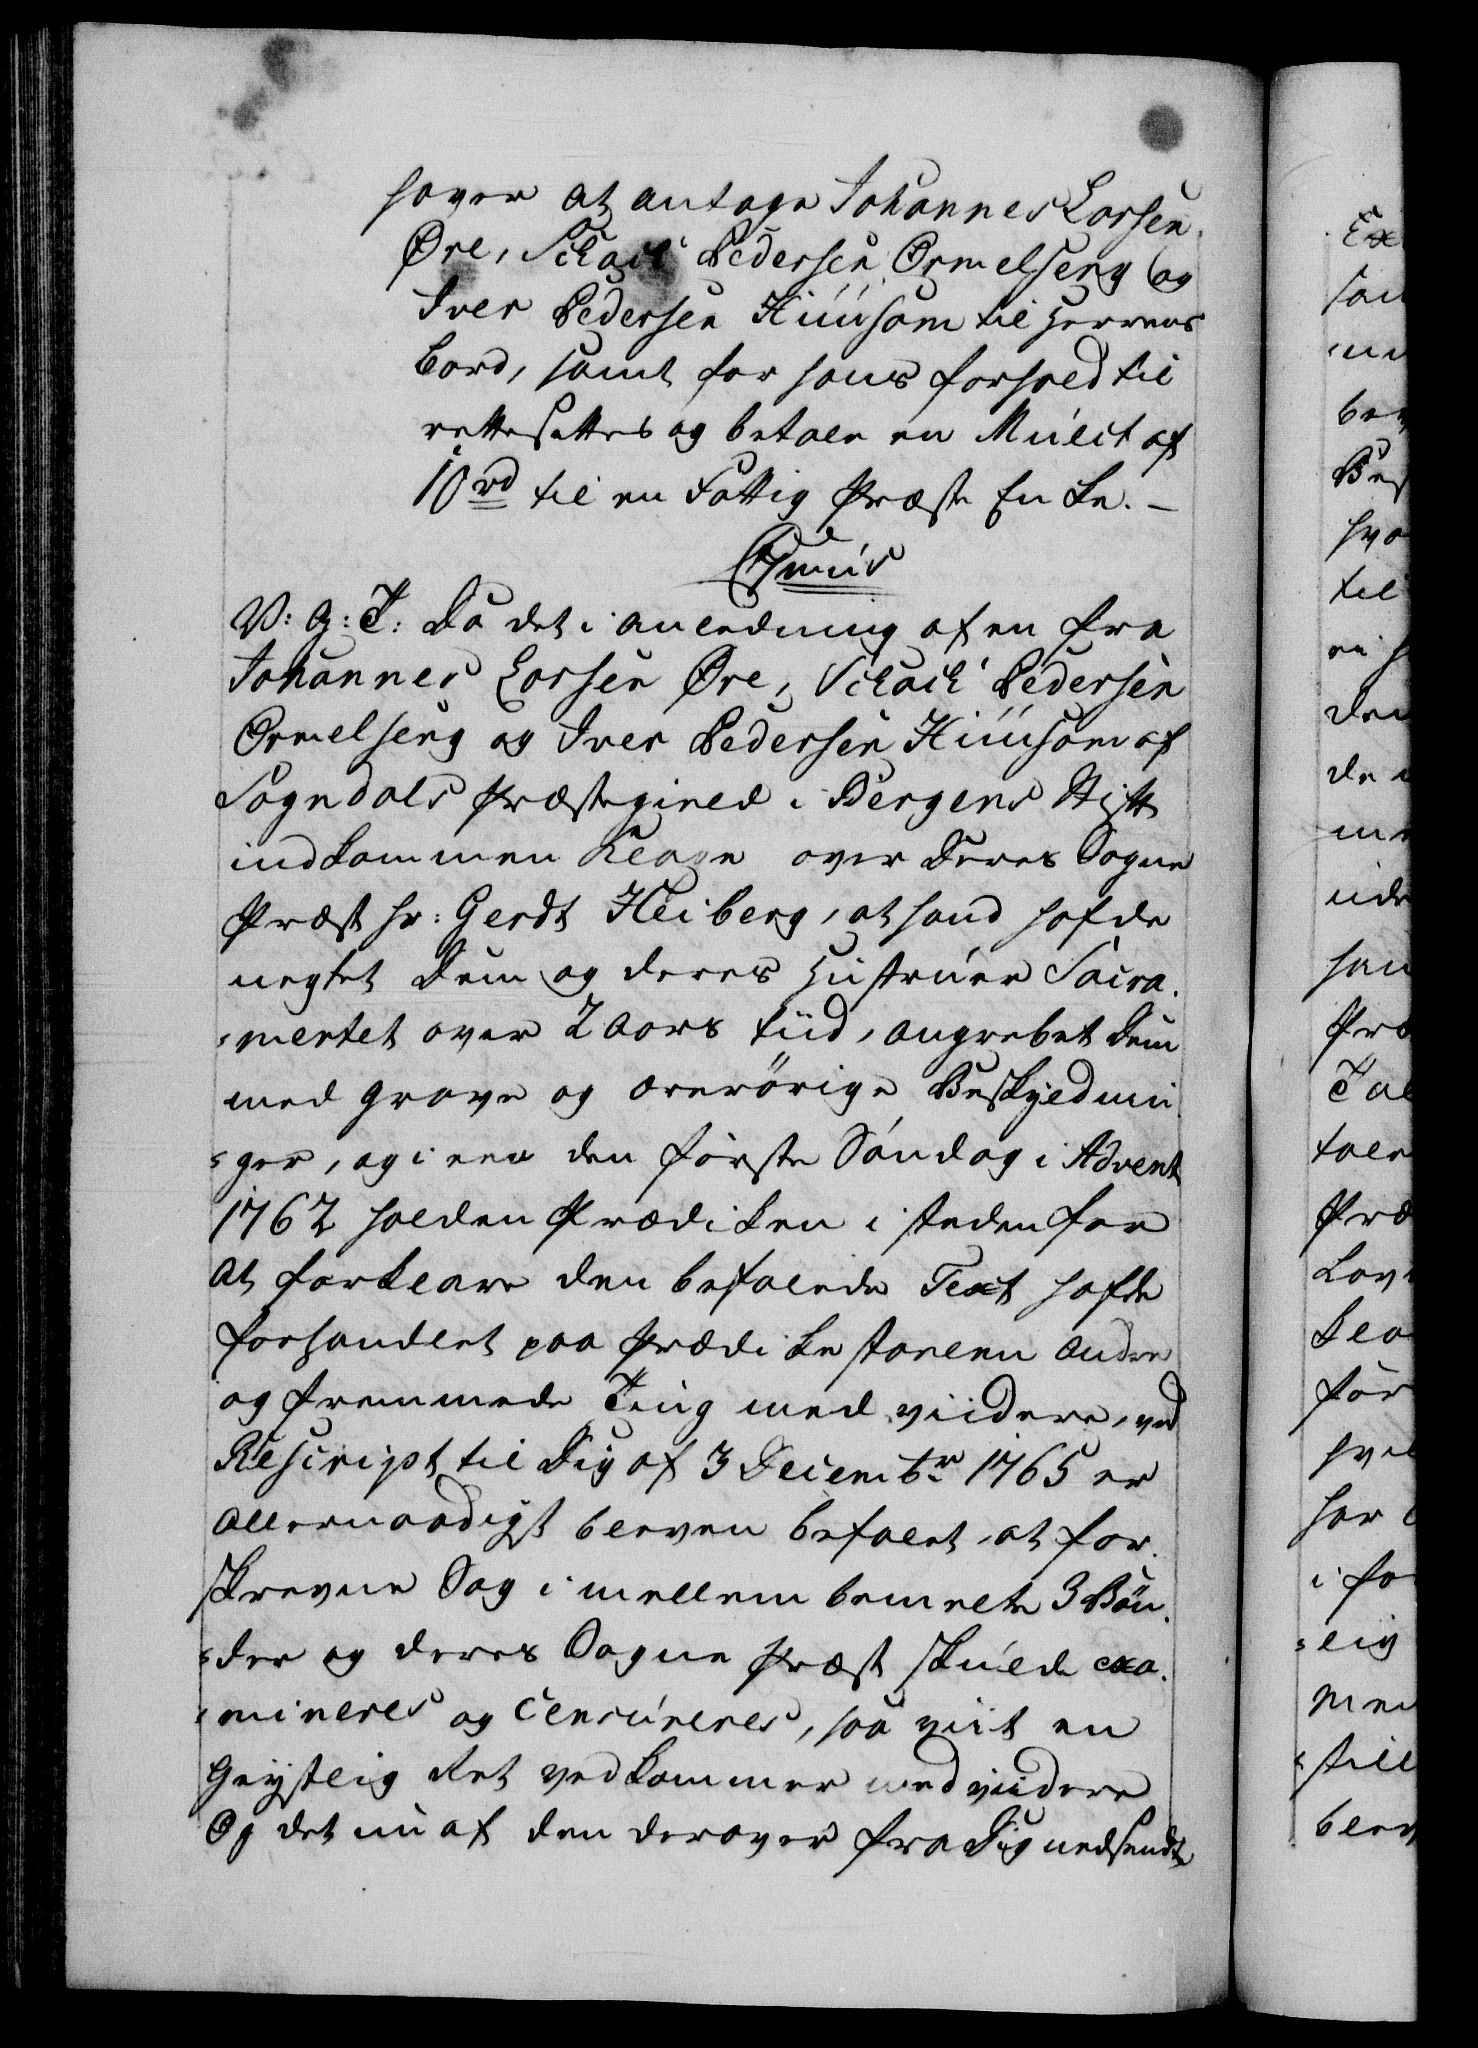 haver at antage Johannes Larsen
Øre, Schack Pedersen Ormelseng og
Iver Pedersen Huusom til Herrens
bord, samt for hans forhold til
rettesættes og betale en Mulct af
10 rd til en Fattig Præste Enke. –
Chmus
V: G: T: Da det i anledning af en fra
Johannes Larsen Øre, Schack Pedersen
Ormelseng og Iver Pedersen Huusom af
Sogndals Præstegield i Bergens Stift
indkommen Klage over Deres Sogne
Præst Hr: Gerdt Heiberg, at hand hafde
negtet Dem og deres Hustruer Sacra-
-mentet over 2 Aars tiid, angrebet dem
med grove og ærerörige Beskyldnin-
-ger, og i een den förste Söndag i Advent
1762 holden Prædiken i steden for
at forklare den befalede Text hafde
forhandlet paa Prædikestoelen andre
og fremmede Ting med viidere, ved
Rescript til Dig af 3 Decembr 1765 er
allernaadigst bleven befalet, at for-
skrevne Sag imellem bemelte 3 Bön-
-der og deres Sogne Præst skulde exa-
-mineres og Censureres, saa vit en
Geistlig Ret vedkommer med viidere
Og det nu af den derover fra Dig nedsendte